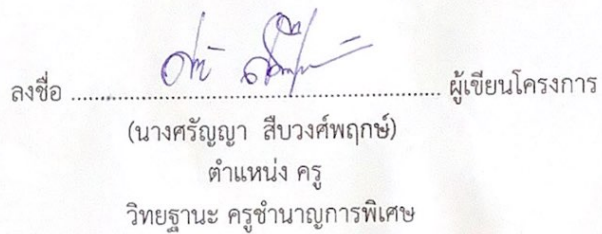 ลงชื่อ ................................................................ ผู้เขียนโครงการ
(นางศรัญญา สืบวงศ์พฤกษ์)
ตำแหน่ง ครู
วิทยฐานะ ครูชำนาญการพิเศษ